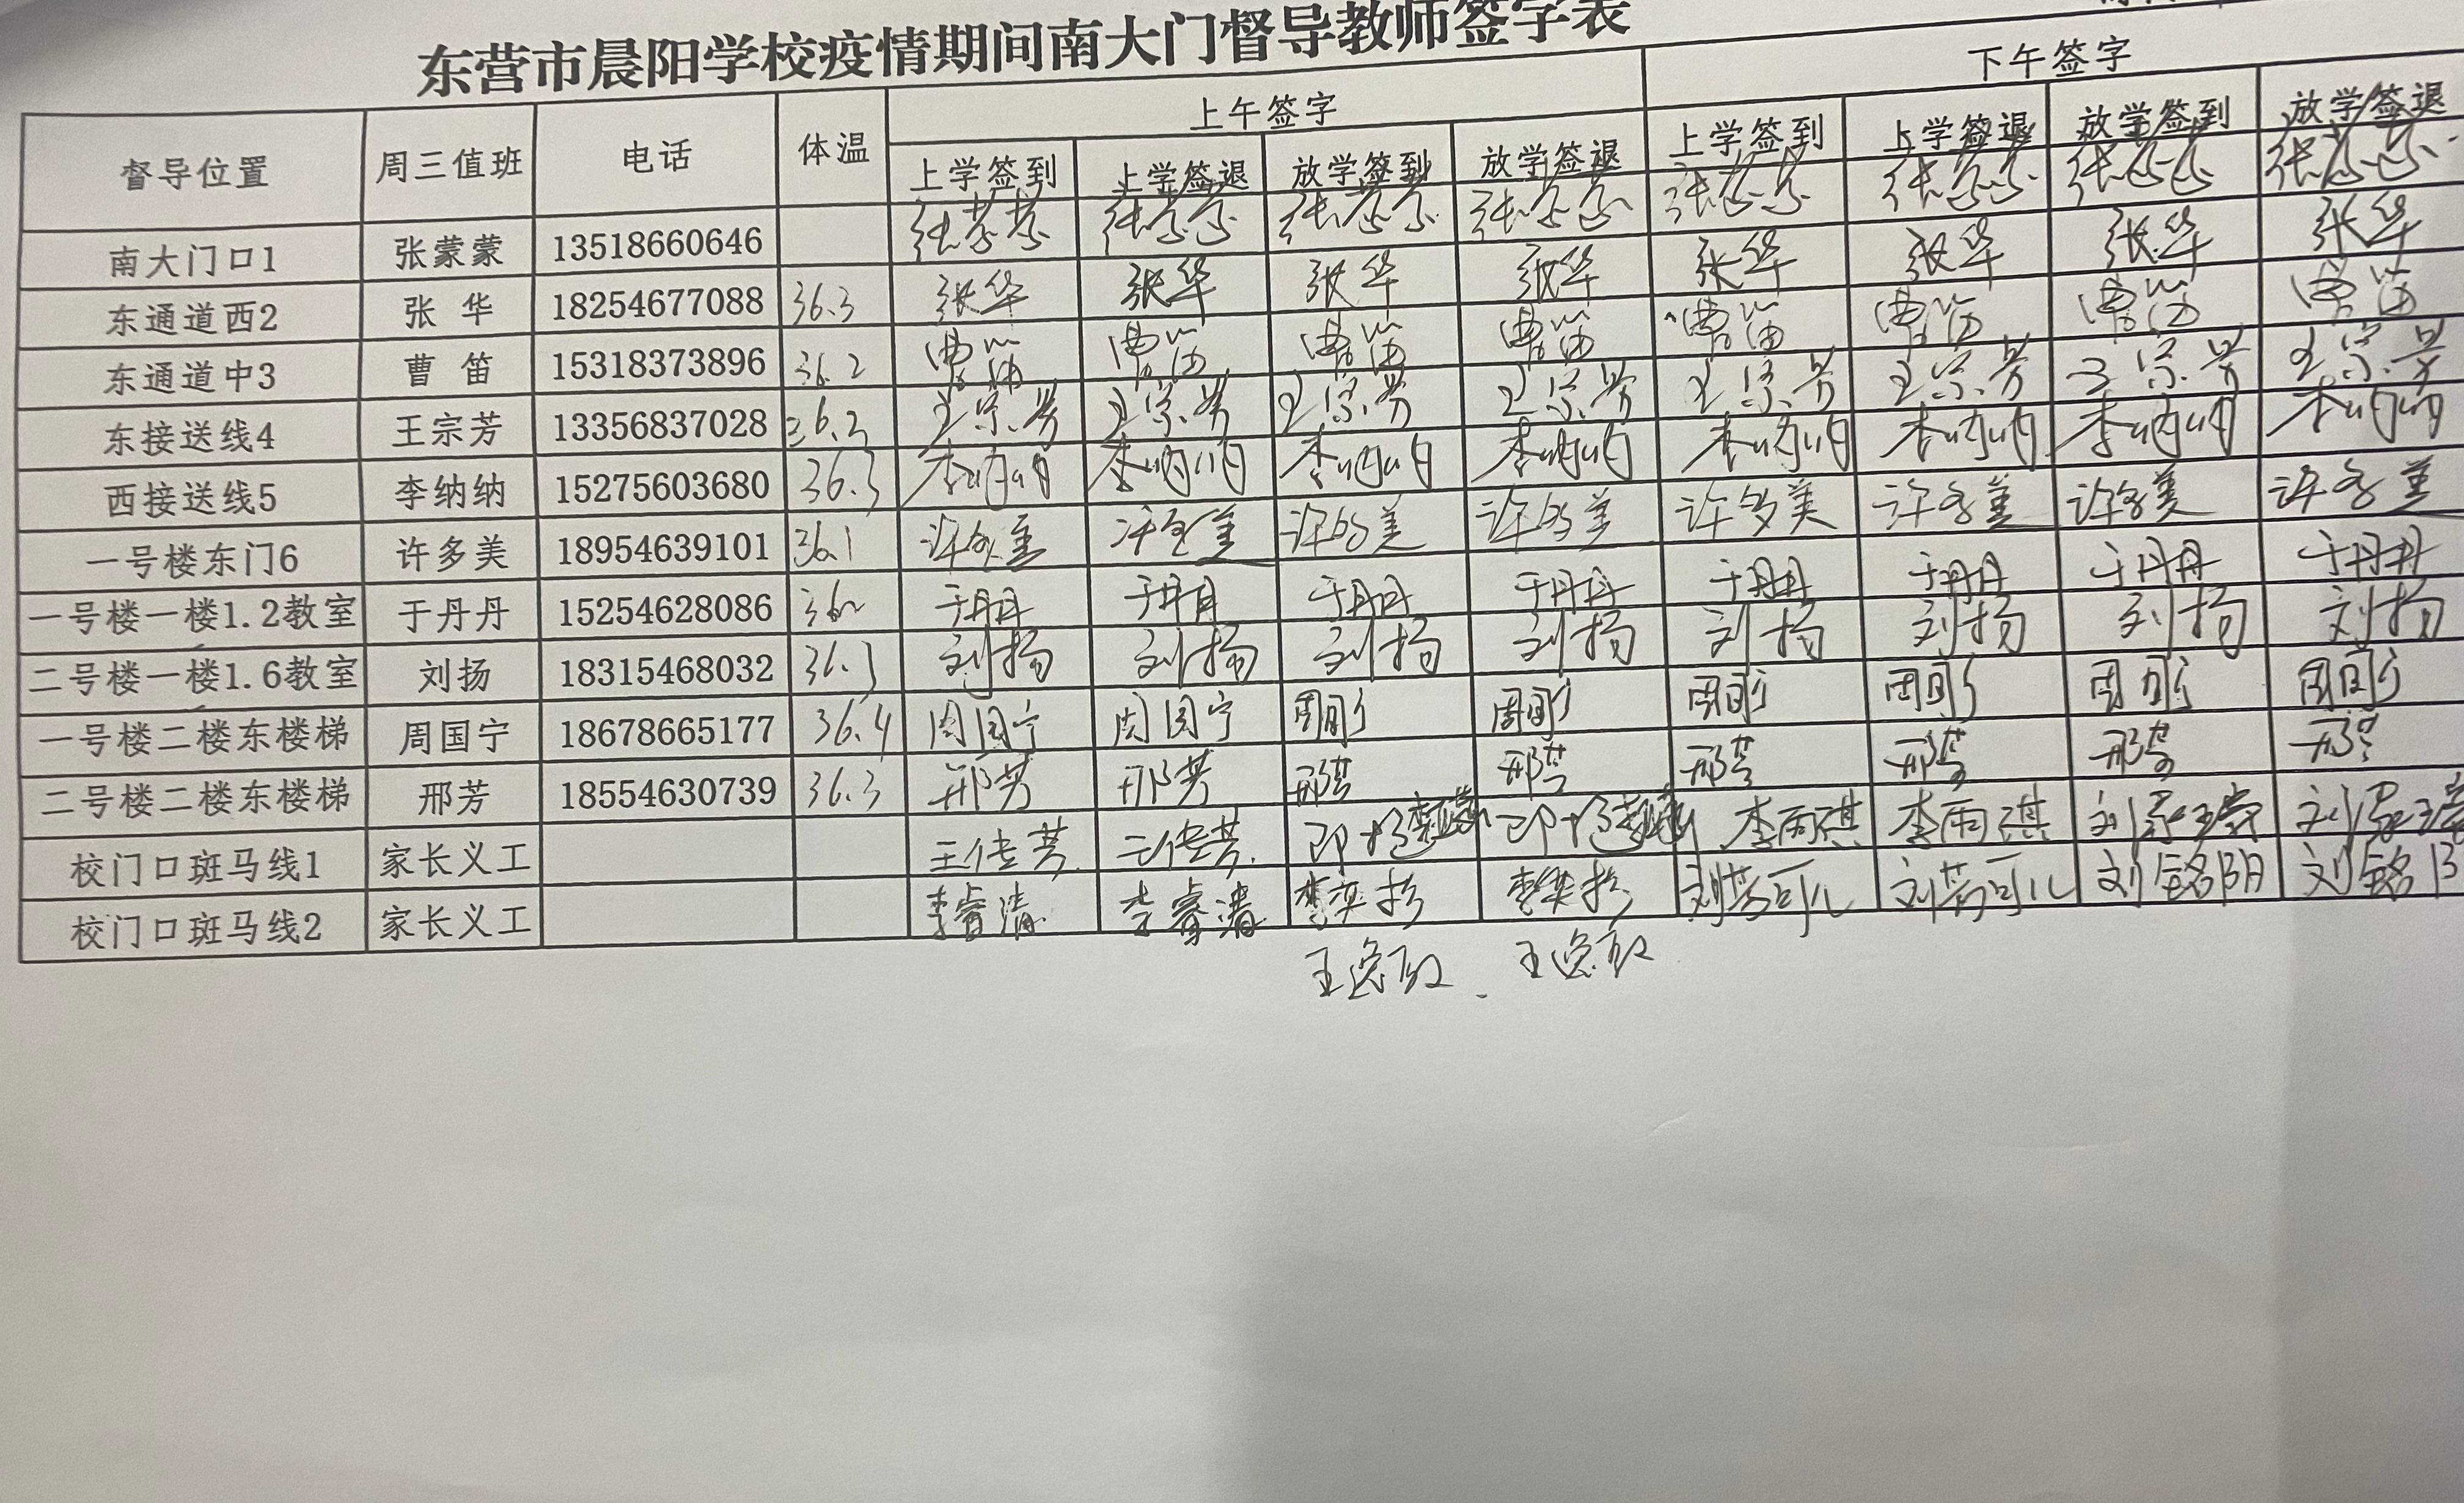 东营市晨阳学校疫情期间南大门督导教师签字表
督导位置 周三值班 电话 体温 上午签字 下午签字
上学签到 上学签退 放学签到 放学签退 上学签到 上学签退 放学签到 放学签退
南大门口1 张蒙蒙 13518660646
东通道西2 张 华 18254677088 36.3 张华 张华 张华 张华 张华 张华 张华 张华
东通道中3 曹 笛 15318373896 36.2 曹笛 曹笛 曹笛 曹笛 曹笛 曹笛 曹笛 曹笛
东接送线4 王宗芳 13356837028 36.2 王宗芳 王宗芳 王宗芳 王宗芳 王宗芳 王宗芳 王宗芳 王宗芳
西接送线5 李纳纳 15275603680 36.3 李纳纳 李纳纳 李纳纳 李纳纳 李纳纳 李纳纳 李纳纳 李纳纳
一号楼东门6 许多美 18954639101 36.1 许多美 许多美 许多美 许多美 许多美 许多美 许多美 许多美
一号楼一楼1.2教室 于丹丹 15254628086 于丹丹 于丹丹 于丹丹 于丹丹 于丹丹 于丹丹 于丹丹 于丹丹
二号楼一楼1.6教室 刘扬 18315468032 36.3 刘扬 刘扬 刘扬 刘扬 刘扬 刘扬 刘扬 刘扬
一号楼二楼东楼梯 周国宁 18678665177 36.4 周国宁 周国宁 周国宁 周国宁 周国宁 周国宁 周国宁 周国宁
二号楼二楼东楼梯 邢芳 18554630739 36.3 邢芳 邢芳 邢芳 邢芳 邢芳 邢芳 邢芳 邢芳
校门口斑马线1 家长义工 王佳芸 王佳芸 李雨琪 李雨琪
校门口斑马线2 家长义工 李睿清 李睿清 李奕杉 李奕杉 刘芮可儿 刘芮可儿 刘铭阳 刘铭阳